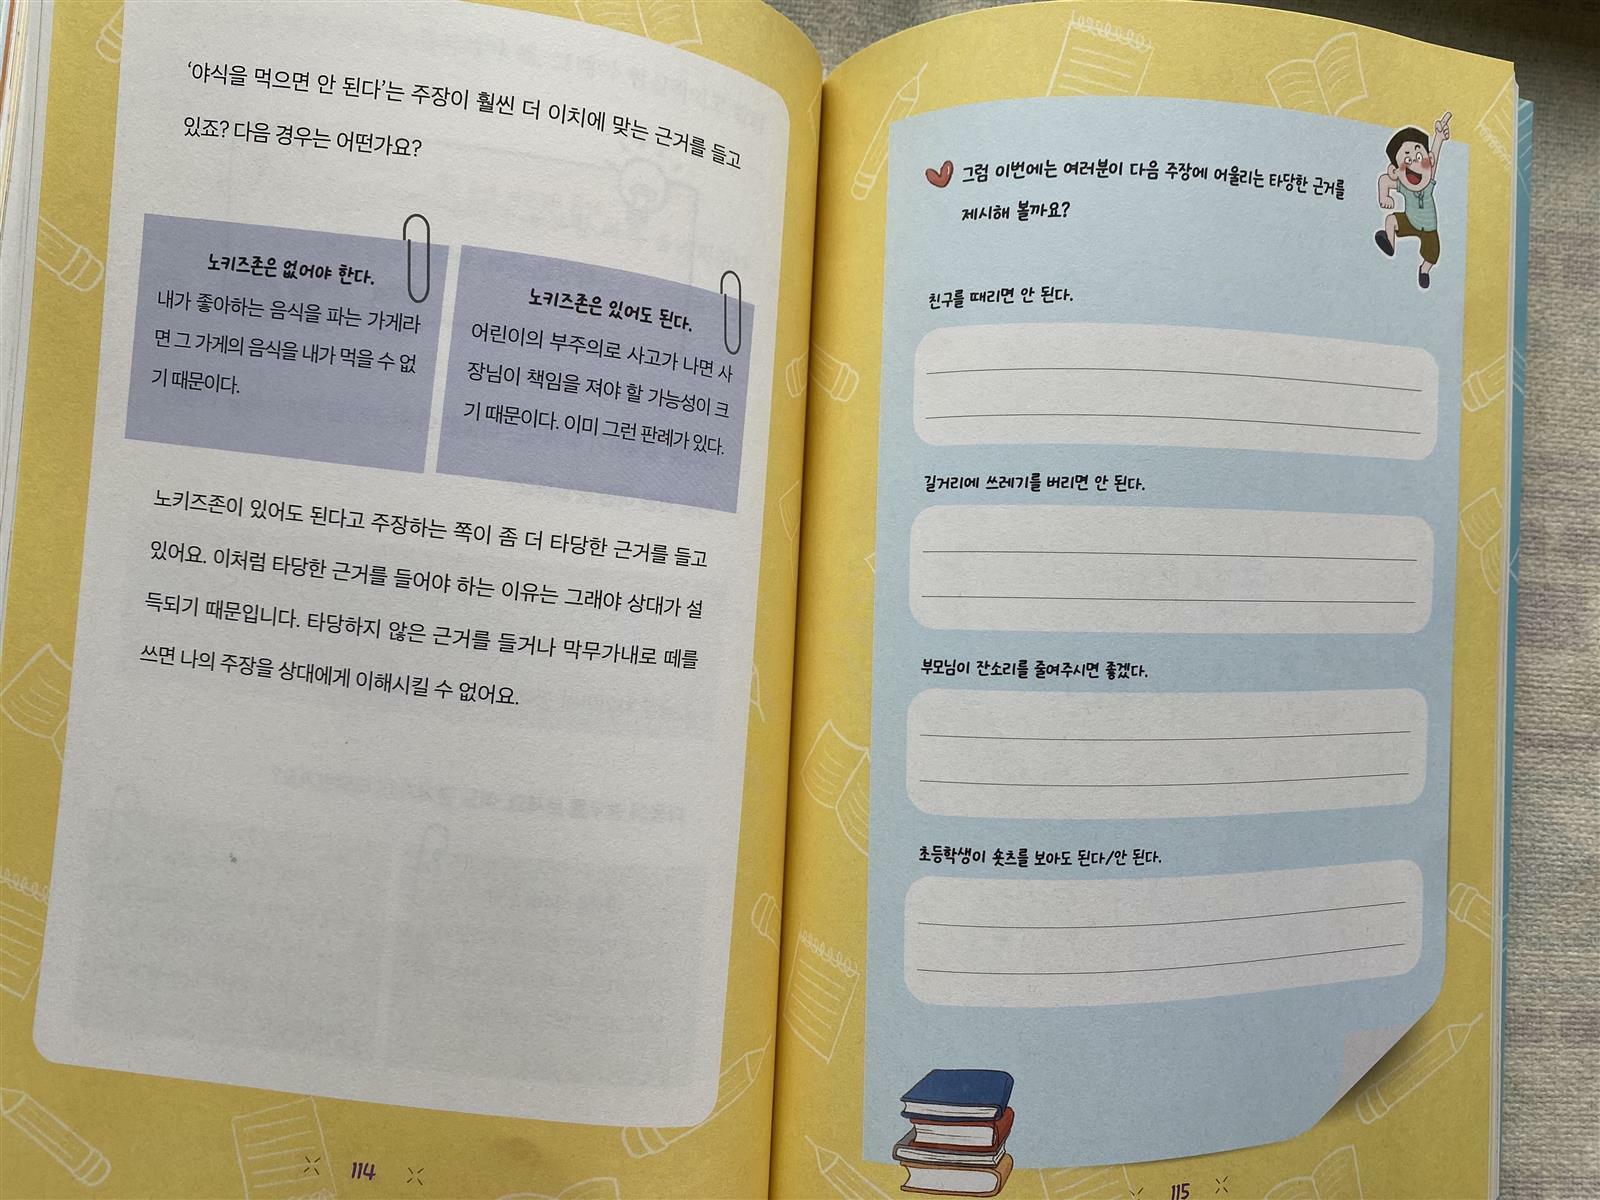 ‘야식을 먹으면 안 된다’는 주장이 훨씬 더 이치에 맞는 근거를 들고
있죠? 다음 경우는 어떤가요?
노키즈존은 없어야 한다.
내가 좋아하는 음식을 파는 가게라
면 그 가게의 음식을 내가 먹을 수 없
기 때문이다.
노키즈존은 있어도 된다.
어린이의 부주의로 사고가 나면 사
장님이 책임을 져야 할 가능성이 크
기 때문이다. 이미 그런 판례가 있다.
노키즈존이 있어도 된다고 주장하는 쪽이 좀 더 타당한 근거를 들고
있어요. 이처럼 타당한 근거를 들어야 하는 이유는 그래야 상대가 설
득되기 때문입니다. 타당하지 않은 근거를 들거나 막무가내로 떼를
쓰면 나의 주장을 상대에게 이해시킬 수 없어요.
114
그럼 이번에는 여러분이 다음 주장에 어울리는 타당한 근거를
제시해 볼까요?
친구를 때리면 안 된다.
길거리에 쓰레기를 버리면 안 된다.
부모님이 잔소리를 줄여주시면 좋겠다.
초등학생이 숏츠를 보아도 된다/안 된다.
115